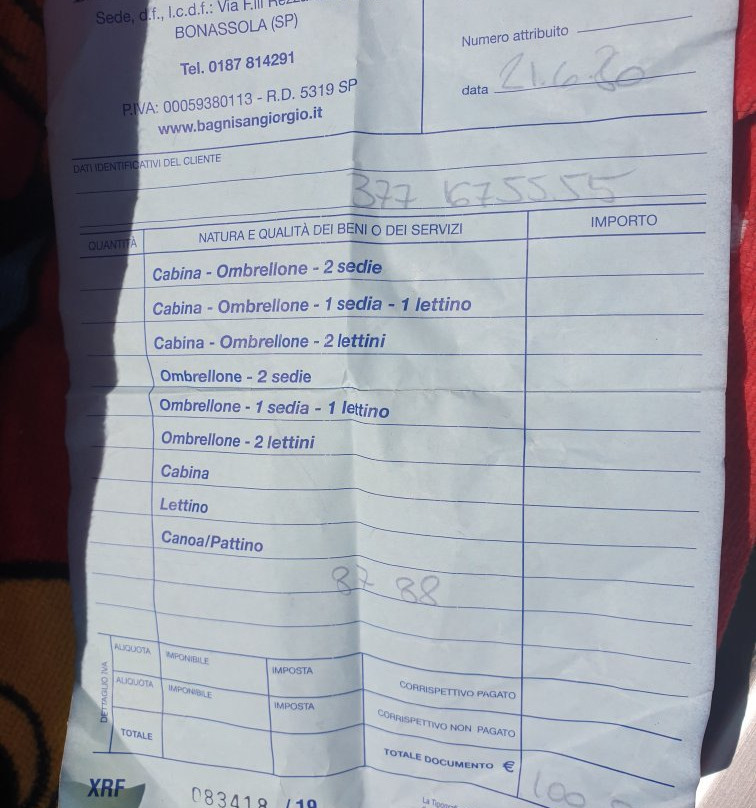 Sede, d.f., l.c.d.f.: Via F.lli
BONASSOLA (SP)
Tel. 0187 814291
P.IVA: 00059380113 - R.D. 5319 SP
www.bagnisangiorgio.it
Numero attribuito
data 21.6.20
DATI IDENTIFICATIVI DEL CLIENTE
377 1675555
QUANTITÀ NATURA E QUALITÀ DEI BENI O DEI SERVIZI IMPORTO
Cabina - Ombrellone - 2 sedie
Cabina - Ombrellone - 1 sedia - 1 lettino
Cabina - Ombrellone - 2 lettini
Ombrellone - 2 sedie
Ombrellone - 1 sedia - 1 lettino
Ombrellone - 2 lettini
Cabina
Lettino
Canoa/Pattino
87 88
DETTAGLIO IVA
ALIQUOTA IMPONIBILE IMPOSTA
ALIQUOTA IMPONIBILE IMPOSTA
TOTALE
CORRISPETTIVO PAGATO
CORRISPETTIVO NON PAGATO
TOTALE DOCUMENTO € 100
XRF 083418 /19
La